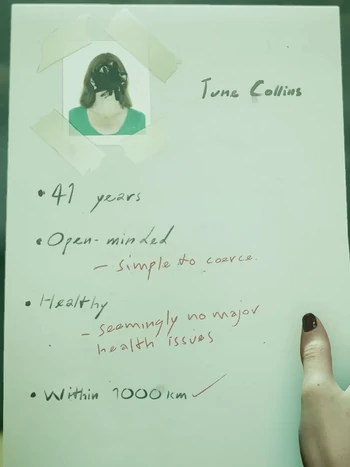 June Collins
• 41 years
• Open-minded
– simple to coerce
• Healthy
– seemingly no major
health issues
• Within 1000 km ✓